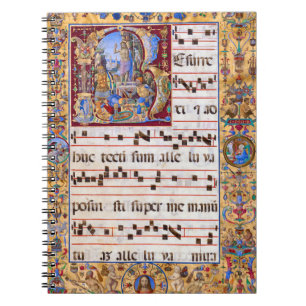 Resurre
xi & ad
huc tecum sum alle lu ya
posui sti super me manū
tu am alle lu ya mira